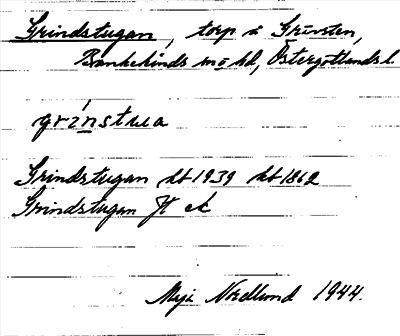 Grindstugan, torp å Grävsten,
Bankekinds sn o hd, Östergötlands l.
grinstua
Grindstugan kb 1939 kb 1862
Grindstugan H ek
Maja Nordlund 1944.